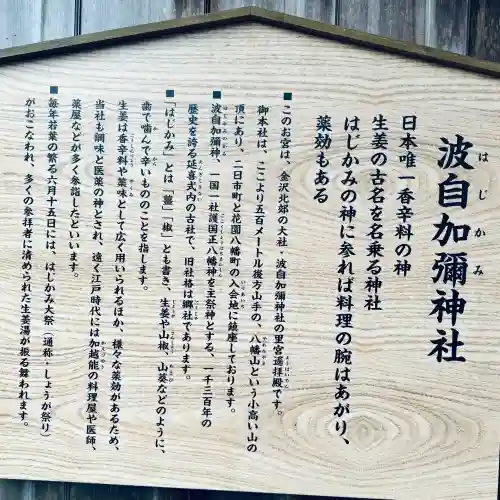 はじかみ
波自加彌神社
日本唯一香辛料の神
生姜の古名を名乗る神社
はじかみの神に参れば料理の腕はあがり、
薬効もある
■このお宮は、金沢北郊の大社 波自加彌神社の里宮遥拝殿です。
御本社は、ここより五百メートル後方山手の、八幡山という小高い山の
頂にあり、二日市町と花園八幡町の入会地に鎮座しております。
■波自加彌神、一国一社護国正八幡神を主祭神とする、一千三百年の
歴史を誇る延喜式内の古社で、旧社格は郷社であります。
■「はじかみ」とは「薑」「椒」とも書き、生姜や山椒、山葵などのように、
歯で噛んで辛いもののことを指します。
生姜は香辛料や薬味として広く用いられるほか、様々な薬効があるため、
当社も調味と医薬の神とされ、遠く江戸時代には加越能の料理屋や医師、
薬屋などが多く参詣したといいます。
■毎年若葉の繁る六月十五日には、はじかみ大祭（通称・しょうが祭り）
がおこなわれ、多くの参拝者に清められた生姜湯が振る舞われます。